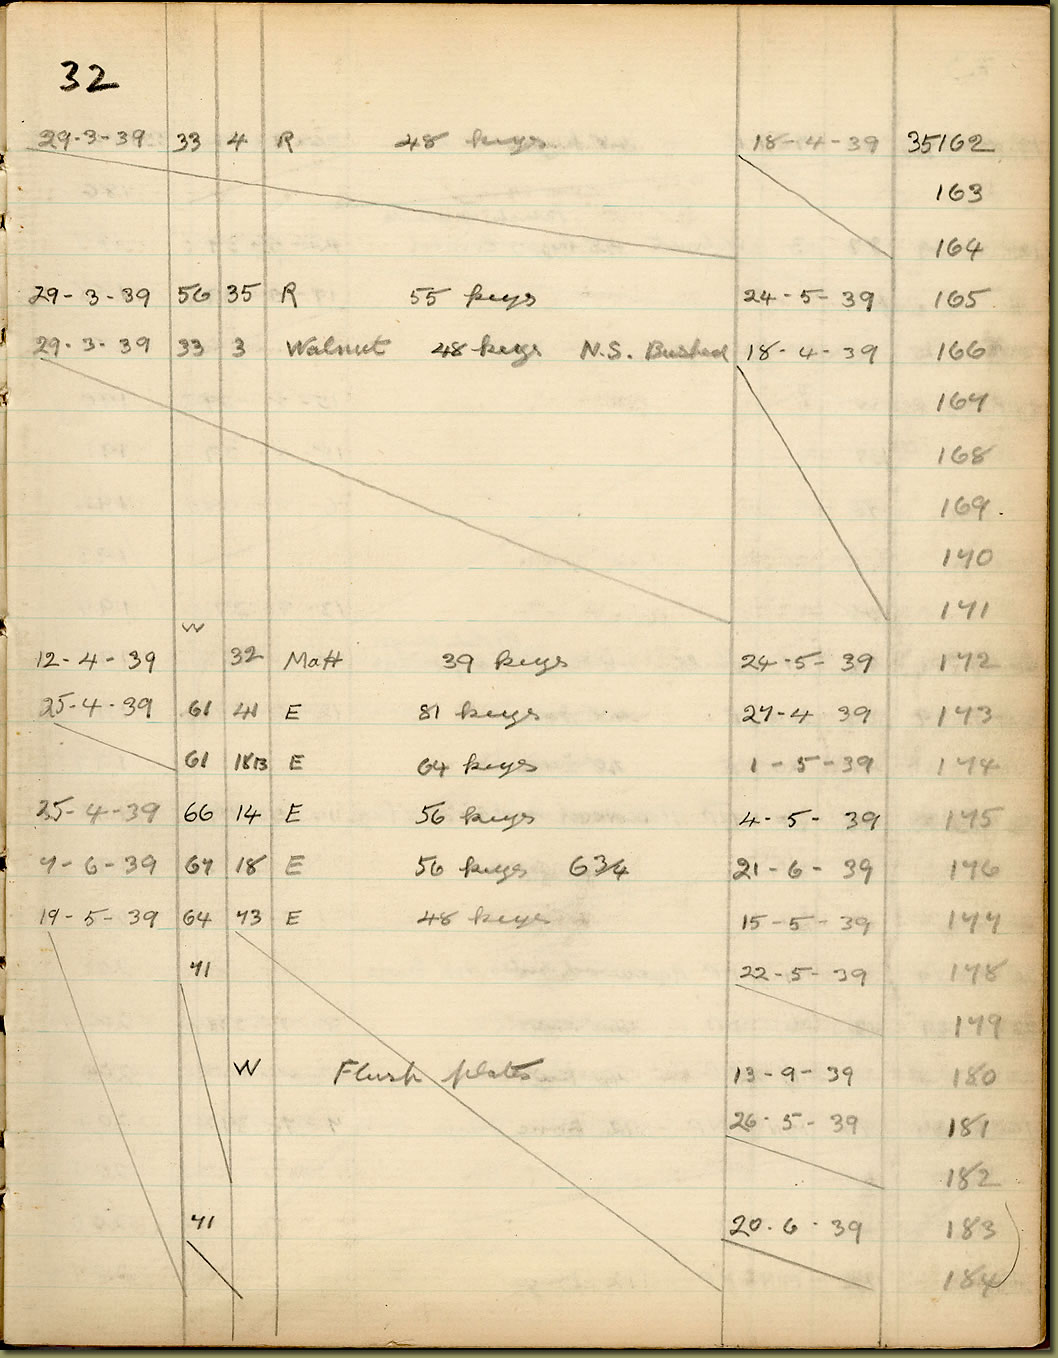 32
29-3-39 33 4 R 48 keys 18-4-39 35162
163
164
29-3-39 56 35 R 55 keys 24-5-39 165
29-3-39 33 3 Walnut 48 keys N.S. Bushed 18-4-39 166
167
168
169.
170
171
W
12-4-39 32 Matt 39 keys 24-5-39 172
25-4-39 61 41 E 81 keys 27-4 39 173
61 18B E 64 keys 1-5-39 174
25-4-39 66 14 E 56 keys 4-5-39 175
7-6-39 67 18 E 56 keys 634 21-6-39 176
19-5-39 64 73 E 48 keys 15-5-39 177
71 22-5-39 178
179
W Flush plates 13-9-39 180
26-5-39 181
182
71 20.6.39 183
184